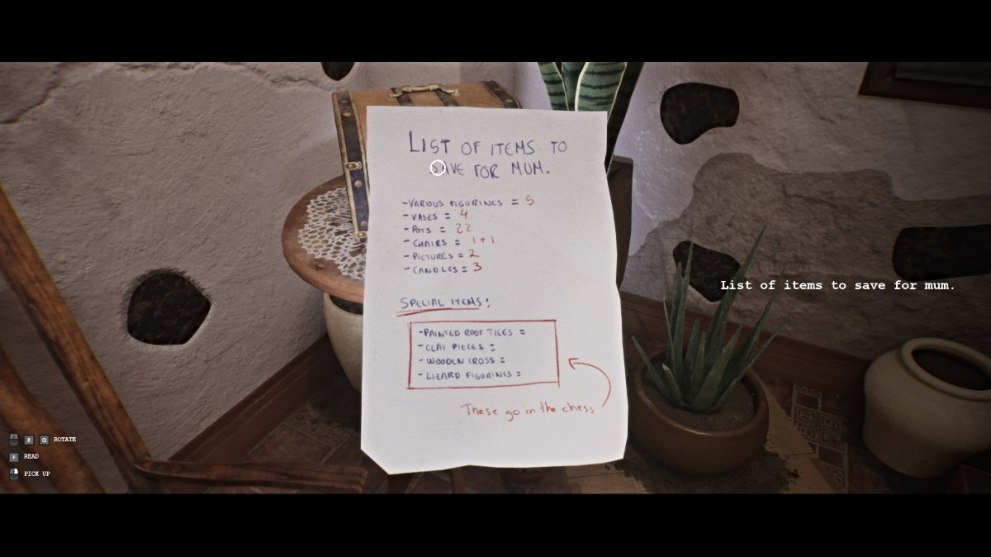 LIST OF ITEMS TO
SAVE FOR MUM.
-VARIOUS FIGURINES = 5
-VASES = 4
-POTS = 22
-CHAIRS = 1+1
-PICTURES = 2
-CANDLES = 3
SPECIAL ITEMS:
-PAINTED ROOF TILES =
-CLAY PIECES =
-WOODEN CROSS =
-LIZARD FIGURINES =
These go in the chess
List of items to save for mum.
E Q ROTATE
F READ
PICK UP